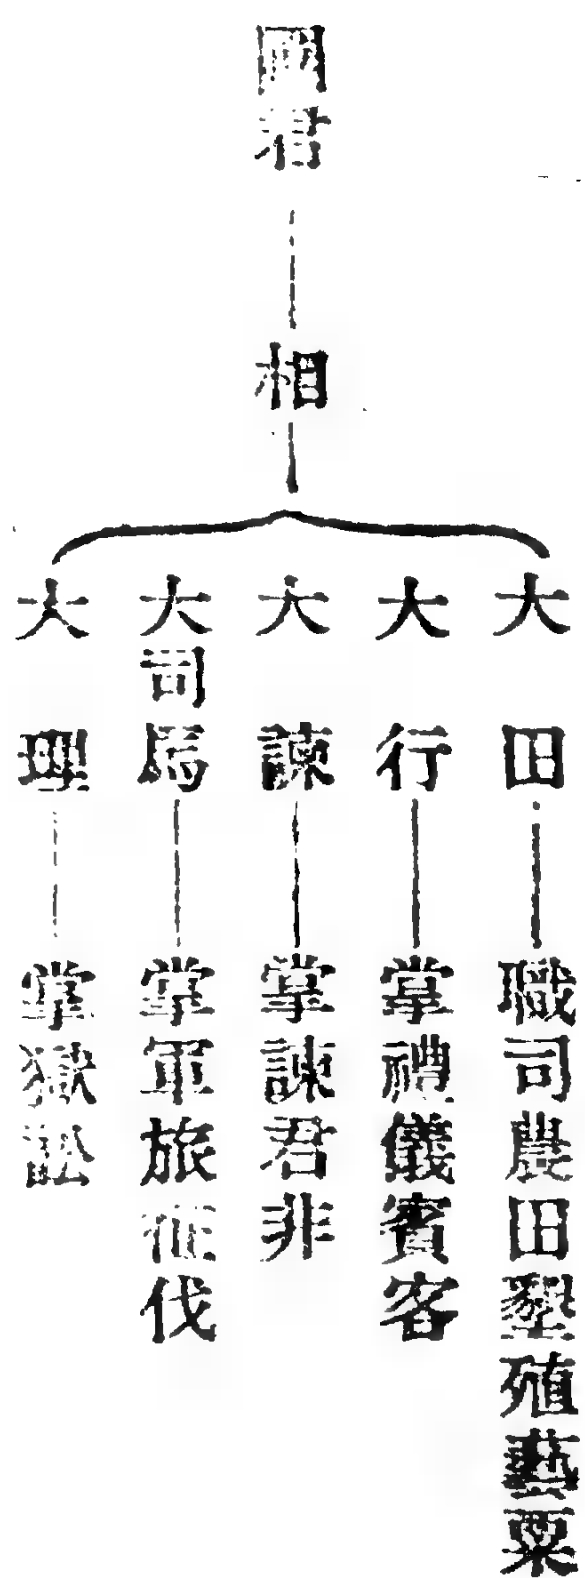 國君
相
大田
職司農田墾殖藝粟
大行
掌禮儀賓客
大諫
掌諫君非
大司馬
掌軍旅征伐
大理
掌獄訟